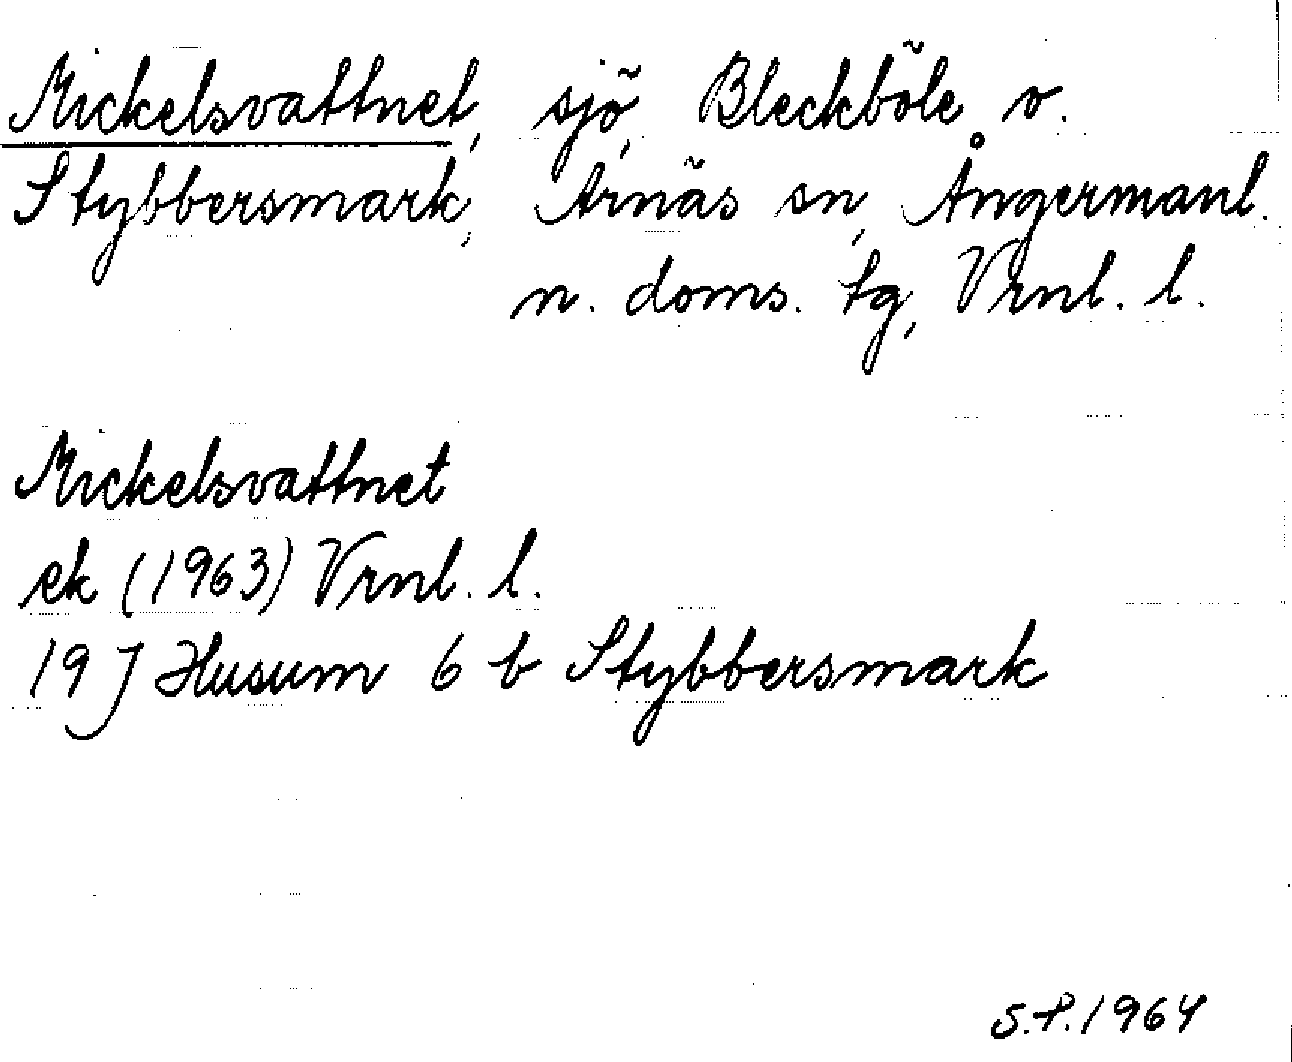 Mickelsvattnet, sjö, Bleckböle o.
Stybbersmark, Arnäs sn, Ångermanl.
n. doms. tg, Vrnl. l.
Mickelsvattnet
ek (1963) Vrnl. l.
19 J Husum 6 b Stybbersmark
S.P. 1964